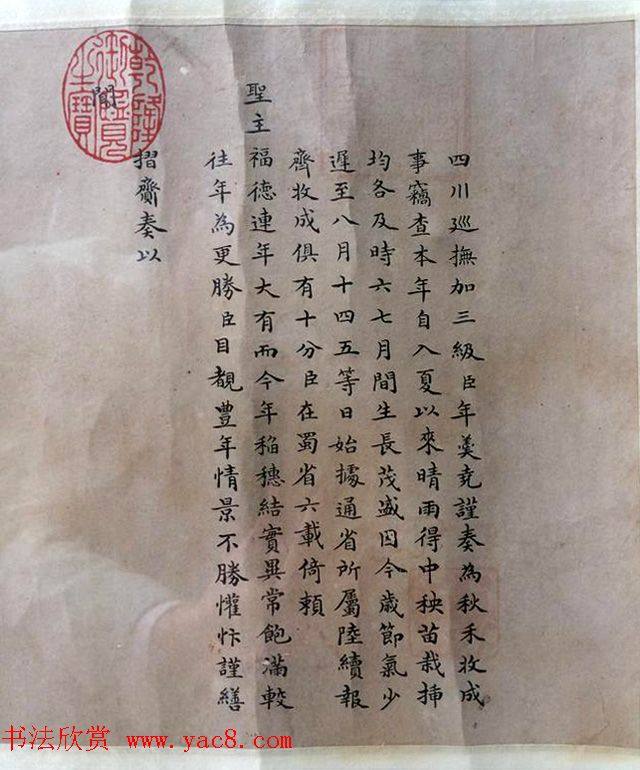 四川巡撫加三級臣年羹尭謹奏為秋禾收成
事竊查本年自入夏以來晴雨得中秧苗栽插
均各及時六七月間生長茂盛因今歲節氣少
遲至八月十四五等日始據通省所屬陸續報
齊收成俱有十分臣在蜀省六載倚賴
聖主福德連年大有而今年稻穗結實異常飽滿較
往年為更勝臣目覩豐年情景不勝懽忭謹繕
摺齎奏以
聞
乾隆
御覽
之寶
书法欣赏 www.yac8.com